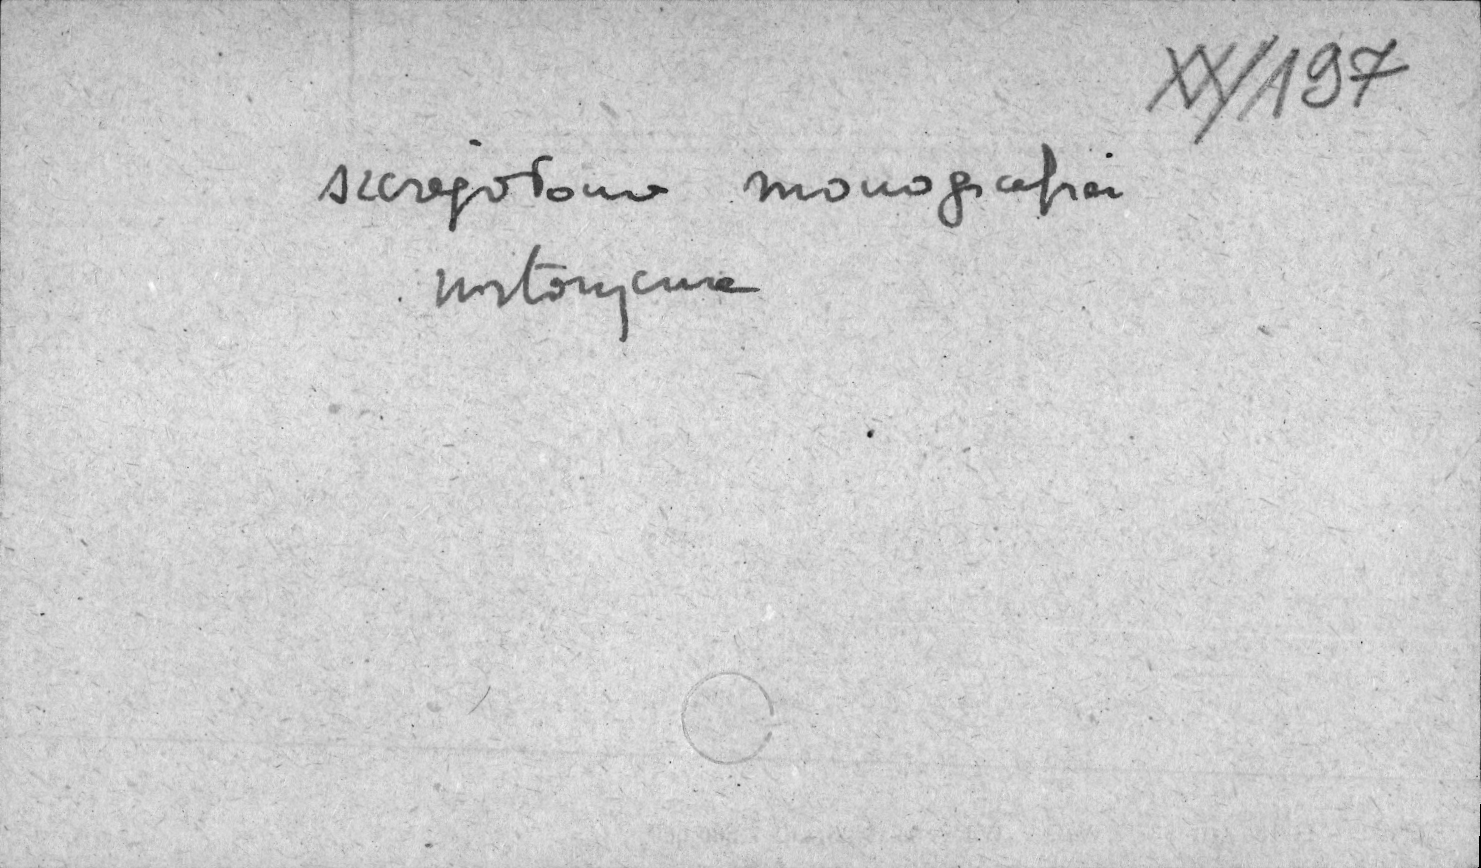 XX/197
szczegółowa monografia
historyczna